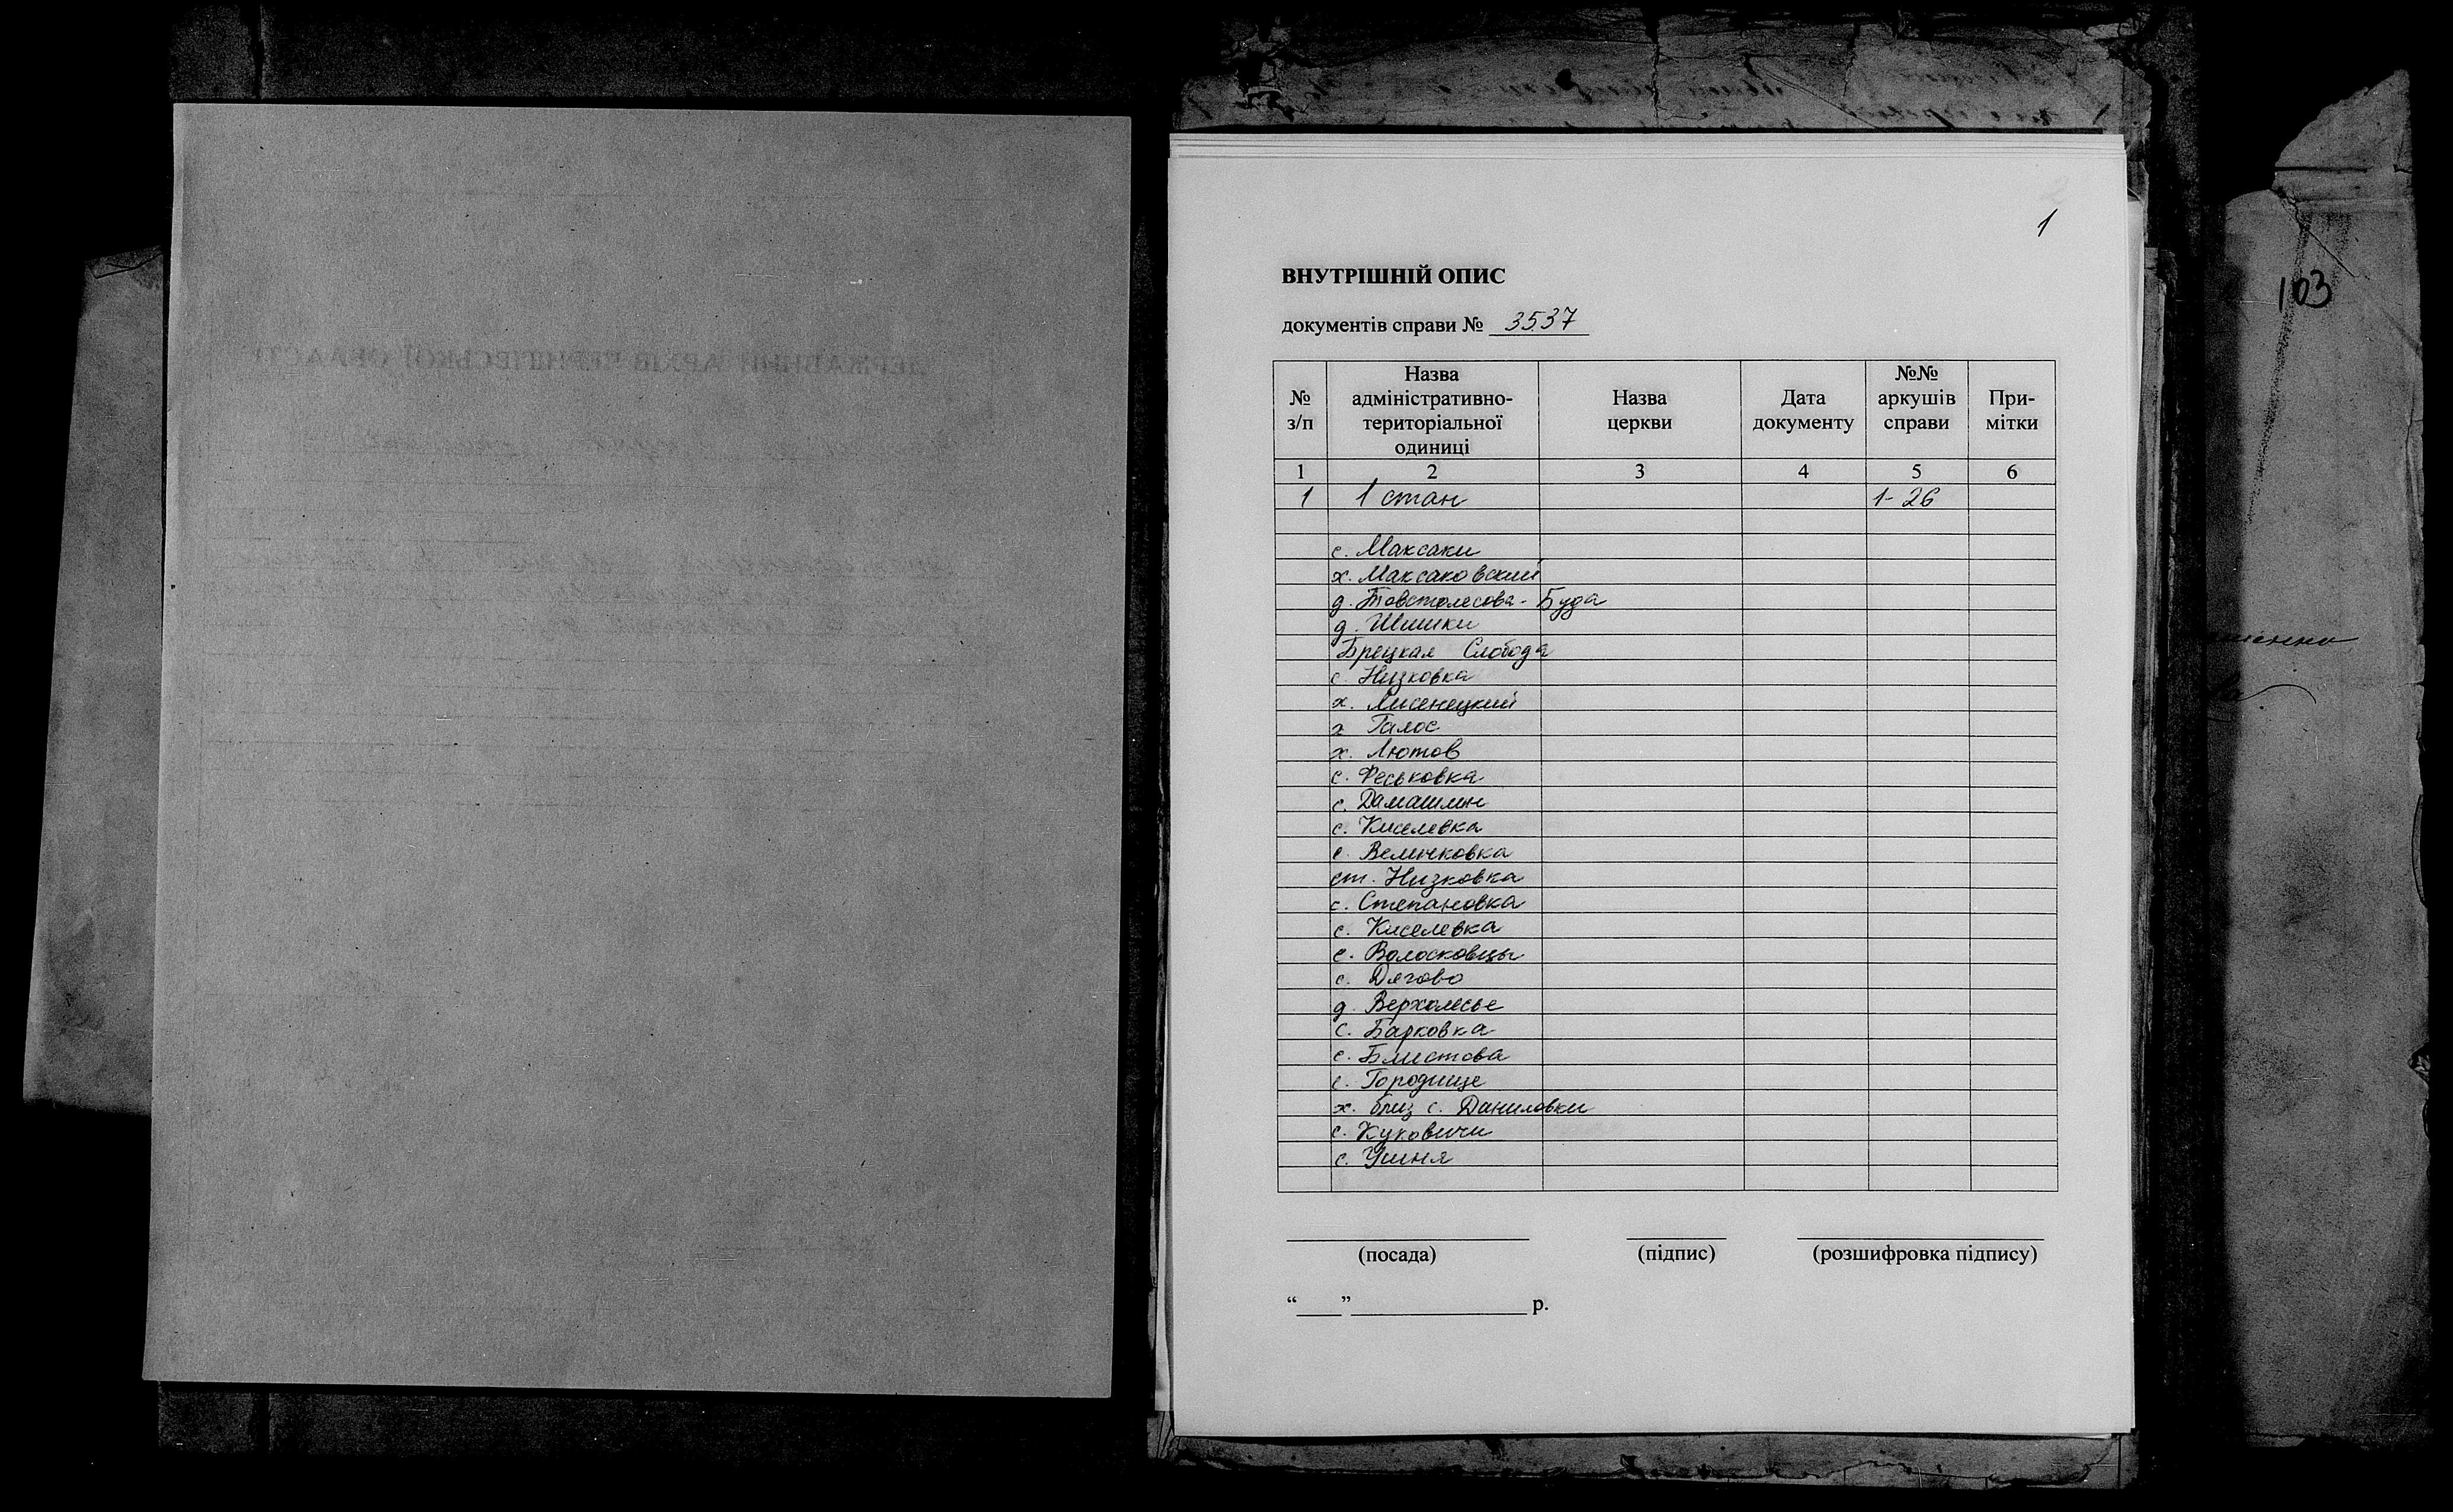 1
ВНУТРІШНІЙ ОПИС
документів справи № 3537
№ з/п
Назва адміністративно-територіальної одиниці
Назва церкви
Дата документу
№№ аркушів справи
При-мітки
1 2 3 4 5 6
1 1 стан 1-26
с. Максаки
х. Максаковский
д. Товстолесова-Буда
д. Шишки
Брецкая Слобода
с. Низковка
х. Лисенецкий
х Галос
х. Лютов
с. Феськовка
с. Дамашлин
с. Киселевка
с. Величковка
ст. Низковка
с. Степановка
с. Киселевка
с. Волосковцы
с. Дягово
д. Верхолесье
с. Барковка
с. Блистова
с. Городище
х. близ с. Даниловки
с. Куковичи
с. Ушня
(посада) (підпис) (розшифровка підпису)
“____”________________ р.
103